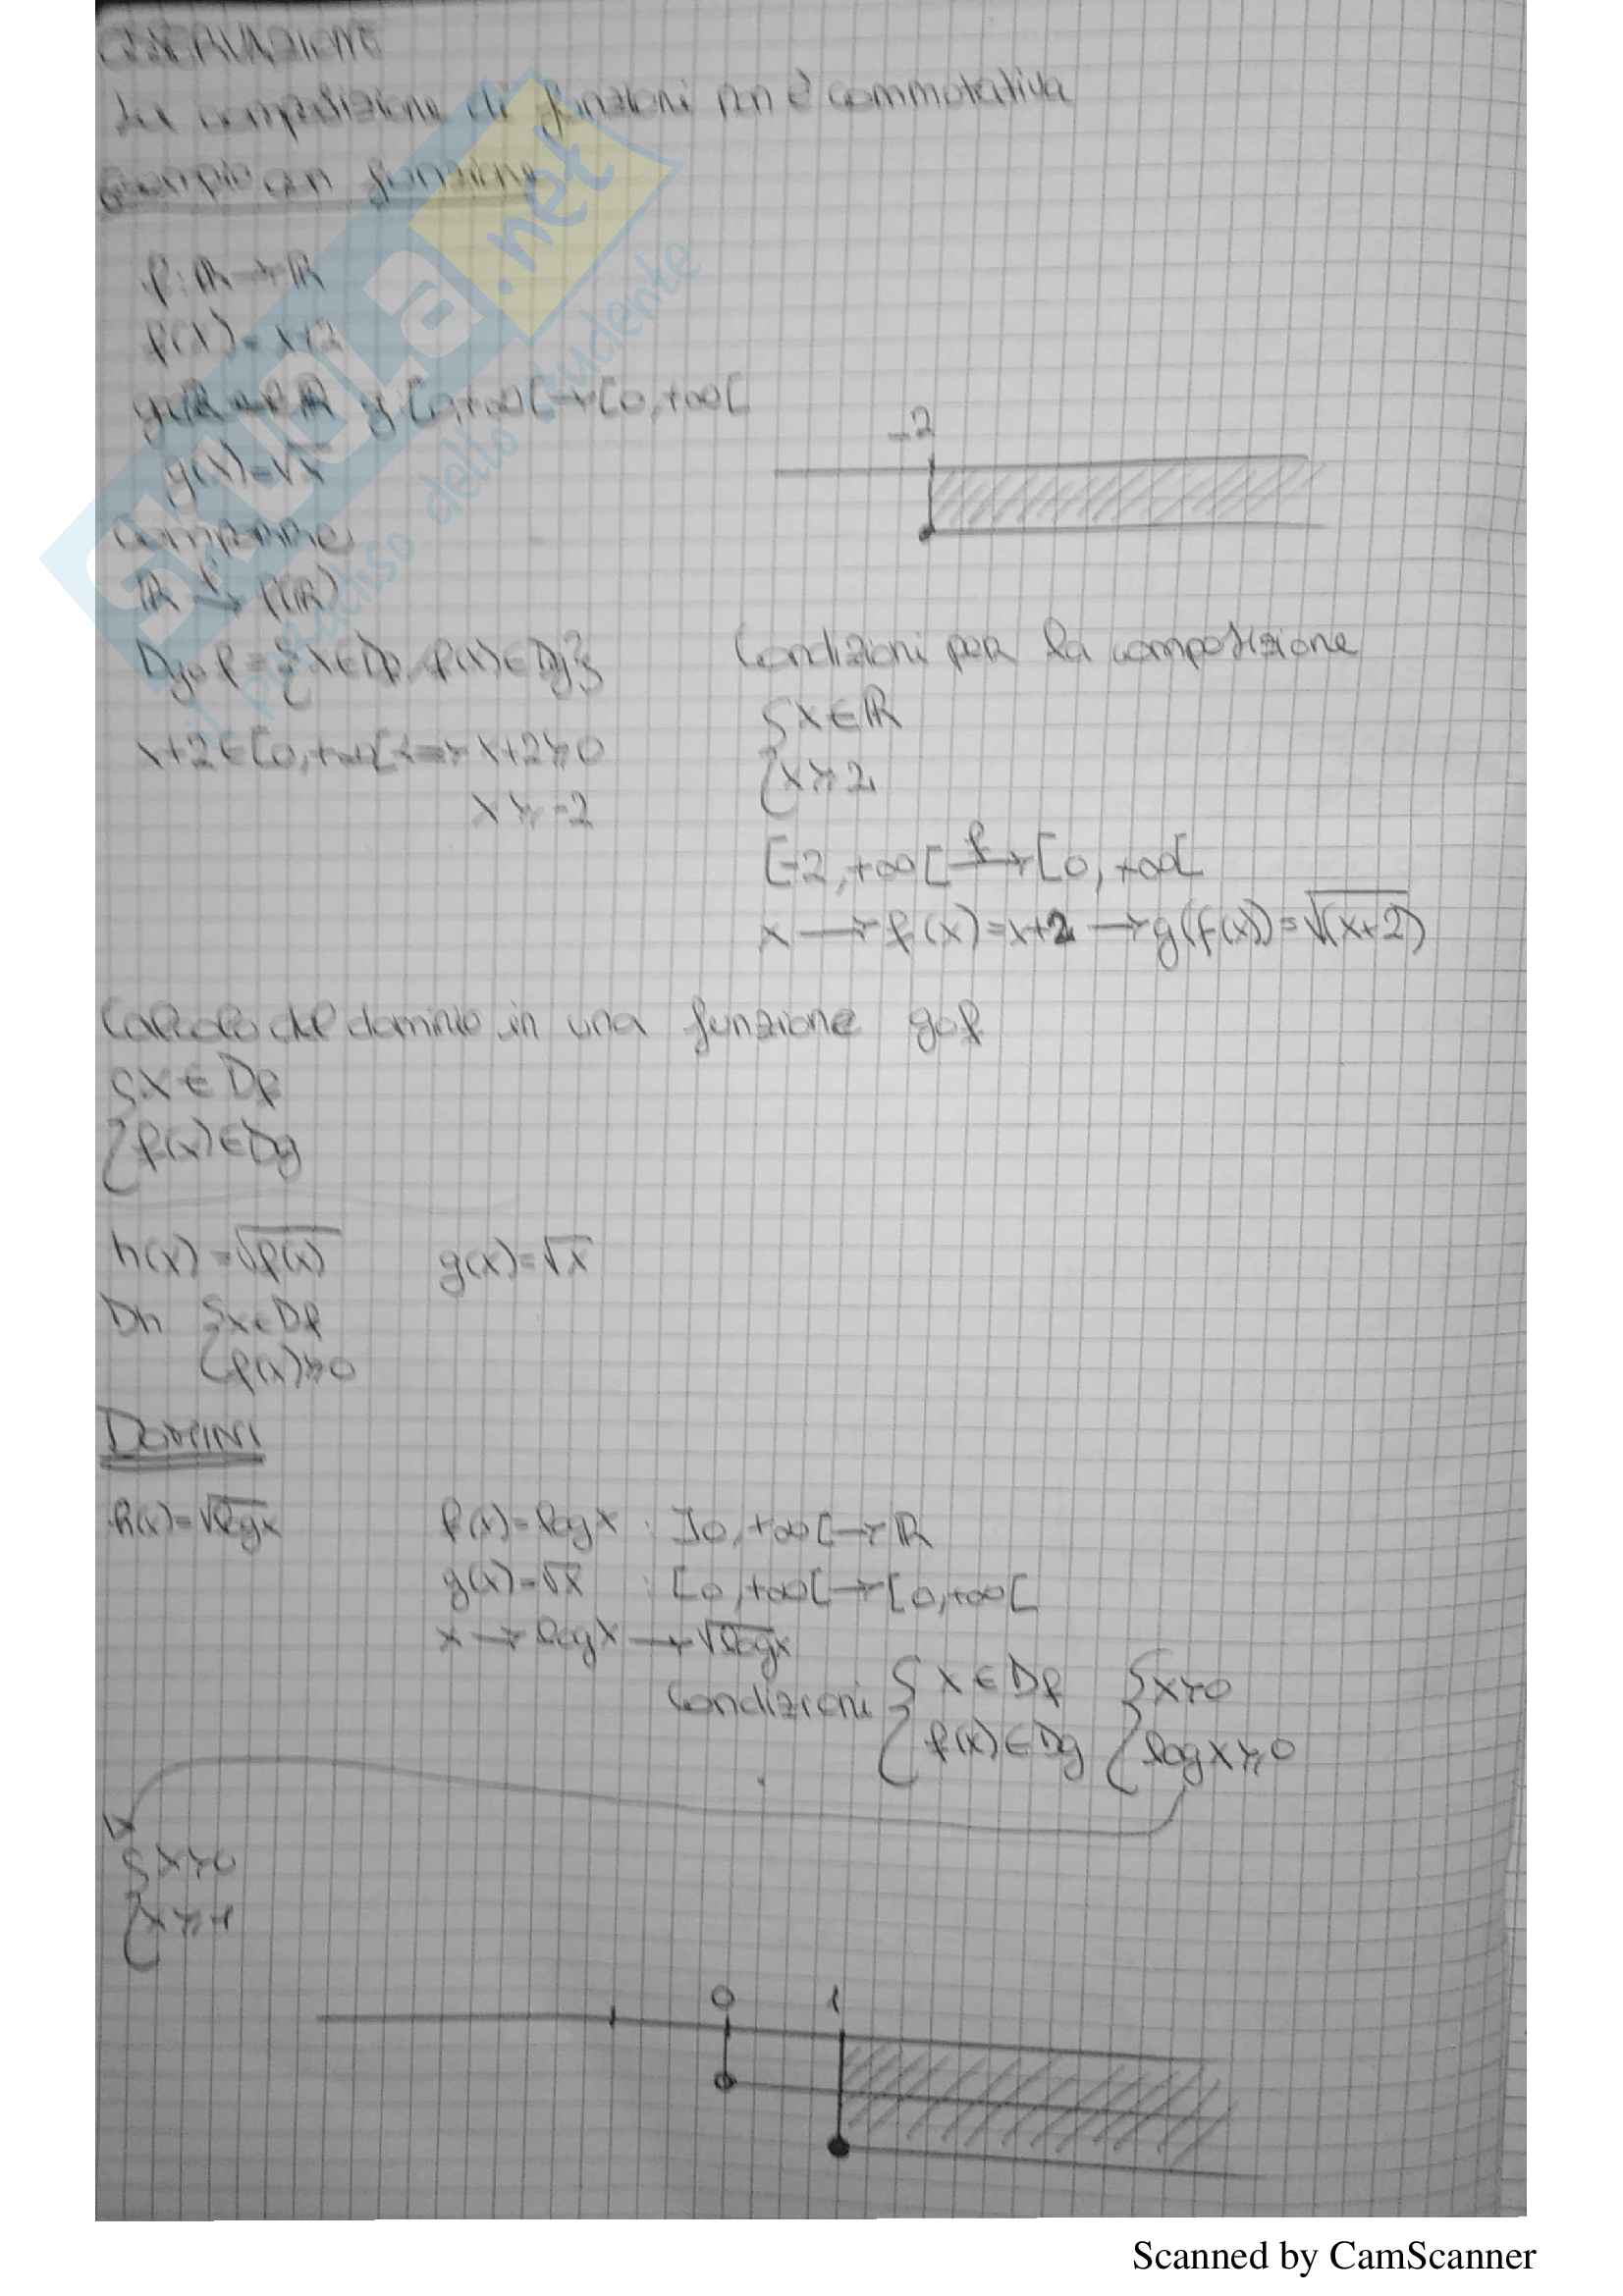 OSSERVAZIONE
La composizione di funzioni non è commutativa
Esempio con funzione
f: ℝ → ℝ
f(x) = x+2
g: [0,+∞[ → [0,+∞[
g(x) = √x
-2
ℝ →f f(ℝ)
Dg∘f = {x ∈ Df, f(x) ∈ Dg}
x+2 ∈ [0,+∞[ <=> x+2 ≥ 0
x ≥ -2
Condizioni per la composizione
{ x ∈ ℝ
{ x ≥ 2
[-2,+∞[ →f [0,+∞[
x → f(x) = x+2 → g(f(x)) = √(x+2)
Calcolo del dominio in una funzione g∘f
{ x ∈ Df
{ f(x) ∈ Dg
h(x) = √f(x) g(x) = √x
Dh { x ∈ Df
{ f(x) ≥ 0
DOMINI
h(x) = √logx f(x) = logx : ]0,+∞[ → ℝ
g(x) = √x : [0,+∞[ → [0,+∞[
x → logx → √logx
Condizioni { x ∈ Df { x > 0
{ f(x) ∈ Dg { logx ≥ 0
{ x > 0
{ x ≥ 1
0 1
SKUOLA.net
il paradiso dello studente
Scanned by CamScanner